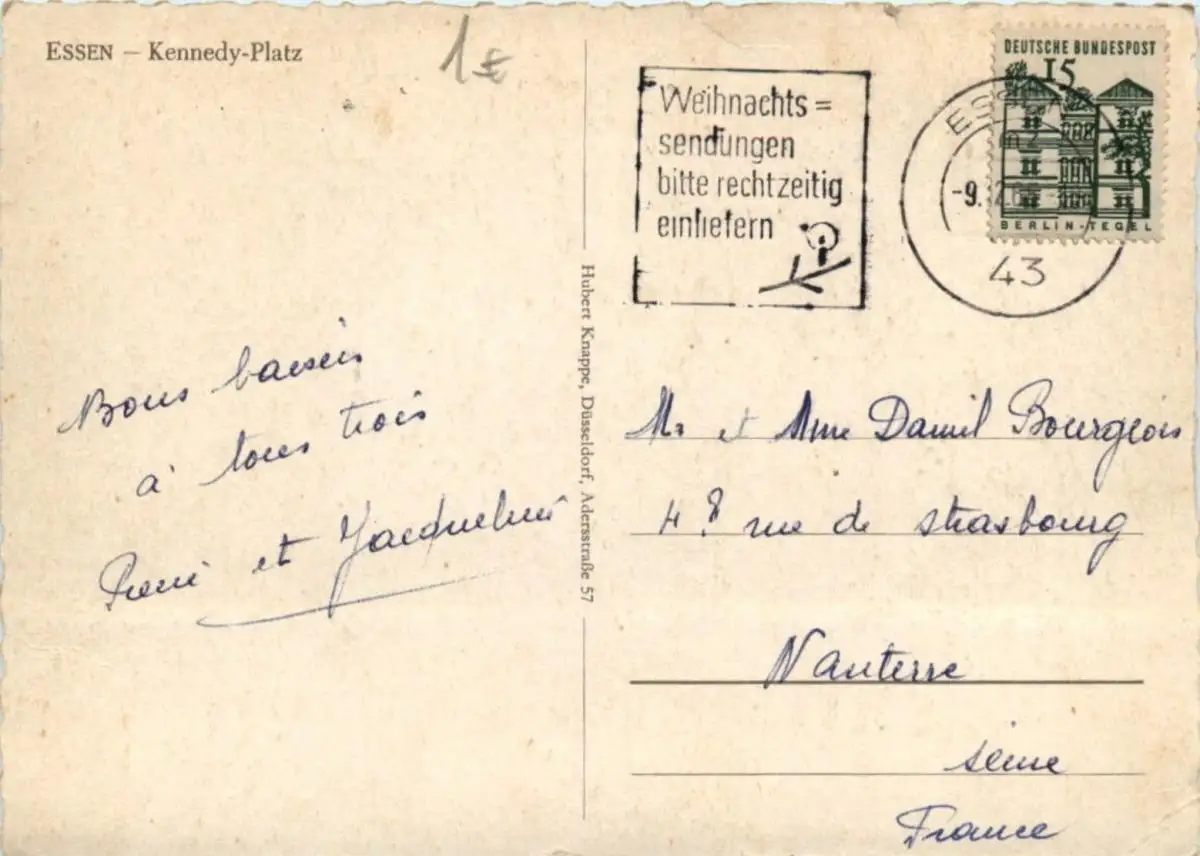 ESSEN – Kennedy-Platz
1 €
Weihnachts=
sendungen
bitte rechtzeitig
einliefern
DEUTSCHE BUNDESPOST
15
BERLIN-TEGEL
ESSEN
-9.
43
Hubert Knappe, Düsseldorf, Adersstraße 57
Bons baisers
à tous trois
et Jacqueline
Mr et Mme Daniel Bourgeois
48 rue de strasbourg
Nanterre
seine
France